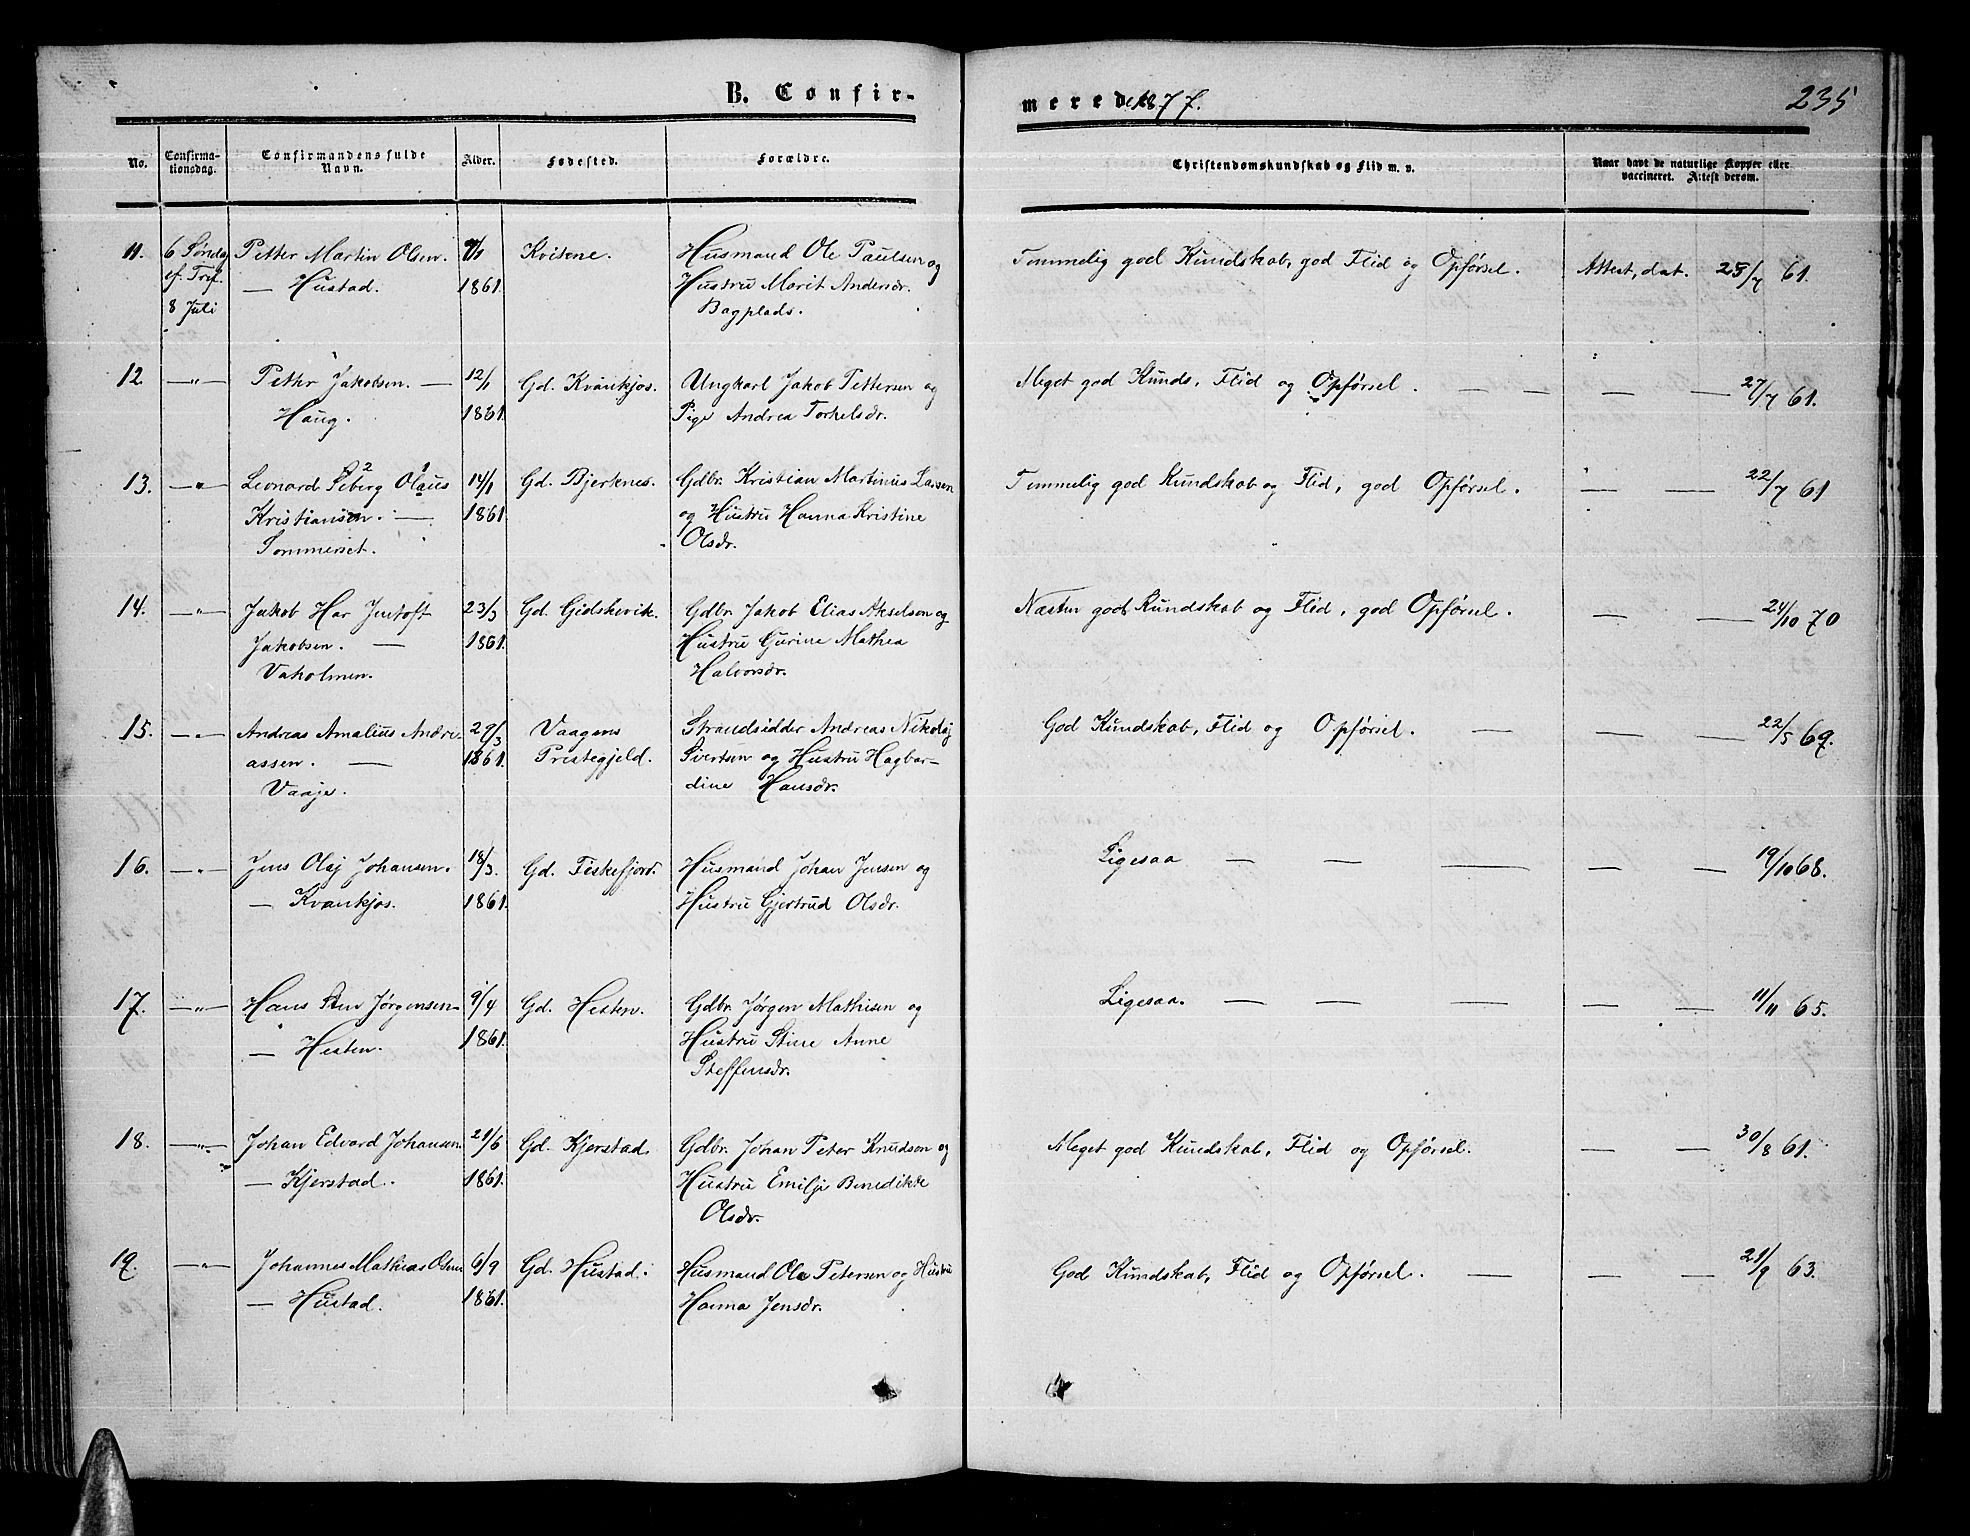 B. Confir-
merede 1877.
235
No.
Confirma-
tionsdag.
Confirmandens fulde
Navn.
Alder.
Fødested.
Forældre.
Christendomskundskab og Flid m. v.
Naar havt de naturlige Kopper eller
vaccineret. Attest derom.
11. 6 Søndag Petter Martin Olsen. 1861. Kvitene. Husmand Ole Paulsen og Temmelig god Kundskab, god Flid og Opførsel. Attest, dat. 25/7 61.
ef. Tref. — Hustad. Hustru Marit Andersdr.
8 Juli Bagplads.
12 —"— Pethr Jakobsen. — 12/1 Gd. Kvankjos. Ungkarl Jakob Pettersen og Meget god Kunds, Flid og Opførsel. — — — — 27/7 61.
Haug. 1861. Pige Andrea Torkelsdr.
13. —"— Leonard Seberg 2 Olaus 1 14/1 Gd. Bjerknes. Gdbr. Kristian Martinus Larsen Temmelig god Kundskab og Flid, god Opførsel. — — 22/7 61
Kristiansen. — 1861. og Hustru Hanna Kristine
Sommerset. Olsdr.
14. —"— Jakob Har Jentoft 23/3 Gd. Gidskevik. Gdbr. Jakob Elias Akselsen og Næsten god Kundskab og Flid, god Opførsel. — — 24/10 70
Jakobsen. — 1861. Hustru Gurine Mathea
Vaholmen. Halvorsdr.
15. —"— Andreas Amalius Andre- 29/3 Vaagens Strandsidder Andreas Nikolaj God Kundskab, Flid og Opførsel. — — — 22/5 69.
assen. — 1861. Pristegjeld. Sivertsen og Hustru Hagbar-
Vaaje. dine Hansdr.
16. —"— Jens Olaj Johansen. 18/3. Gd. Fiskefjord. Husmand Johan Jensen og Ligesaa — — — — — — 19/10 68.
— Kvankjos. 1861. Hustru Gjertrud Olsdr.
17. —"— Hans Jørgensen 9/4 Gd. Hesten. Gdbr. Jørgen Mathisen og Ligesaa. — — — — — 11/11 65.
— Hesten. 1861. Hustru Stine Anne
Steffensdr.
18. —"— Johan Edvard Johansen. 21/6 Gd. Kjerstad. Gdbr. Johan Peter Knudsen og Meget god Kundskab, Flid og Opførsel. — — 30/8 61.
— Kjerstad. 1861. Hustru Emilje Benedikte
Olsdr.
19. —"— Johannes Mathias Olsen 6/9 Gd. Hustad. Husmand Ole Petersen og Hustru God Kundskab, Flid og Opførsel. — — — 21/9 63.
— Hustad. 1861. Hanna Jensdr.